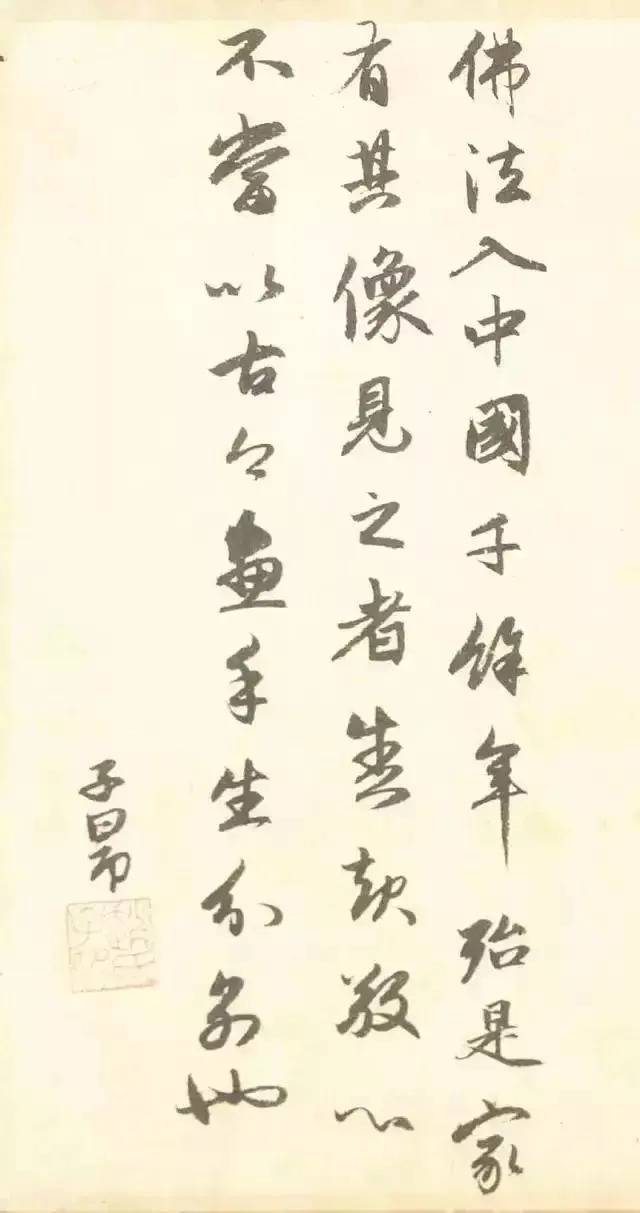 佛法入中國千餘年殆是家
有其像見之者畫起敬心
不當以古今畫手生分別也
子昂
趙氏子昂